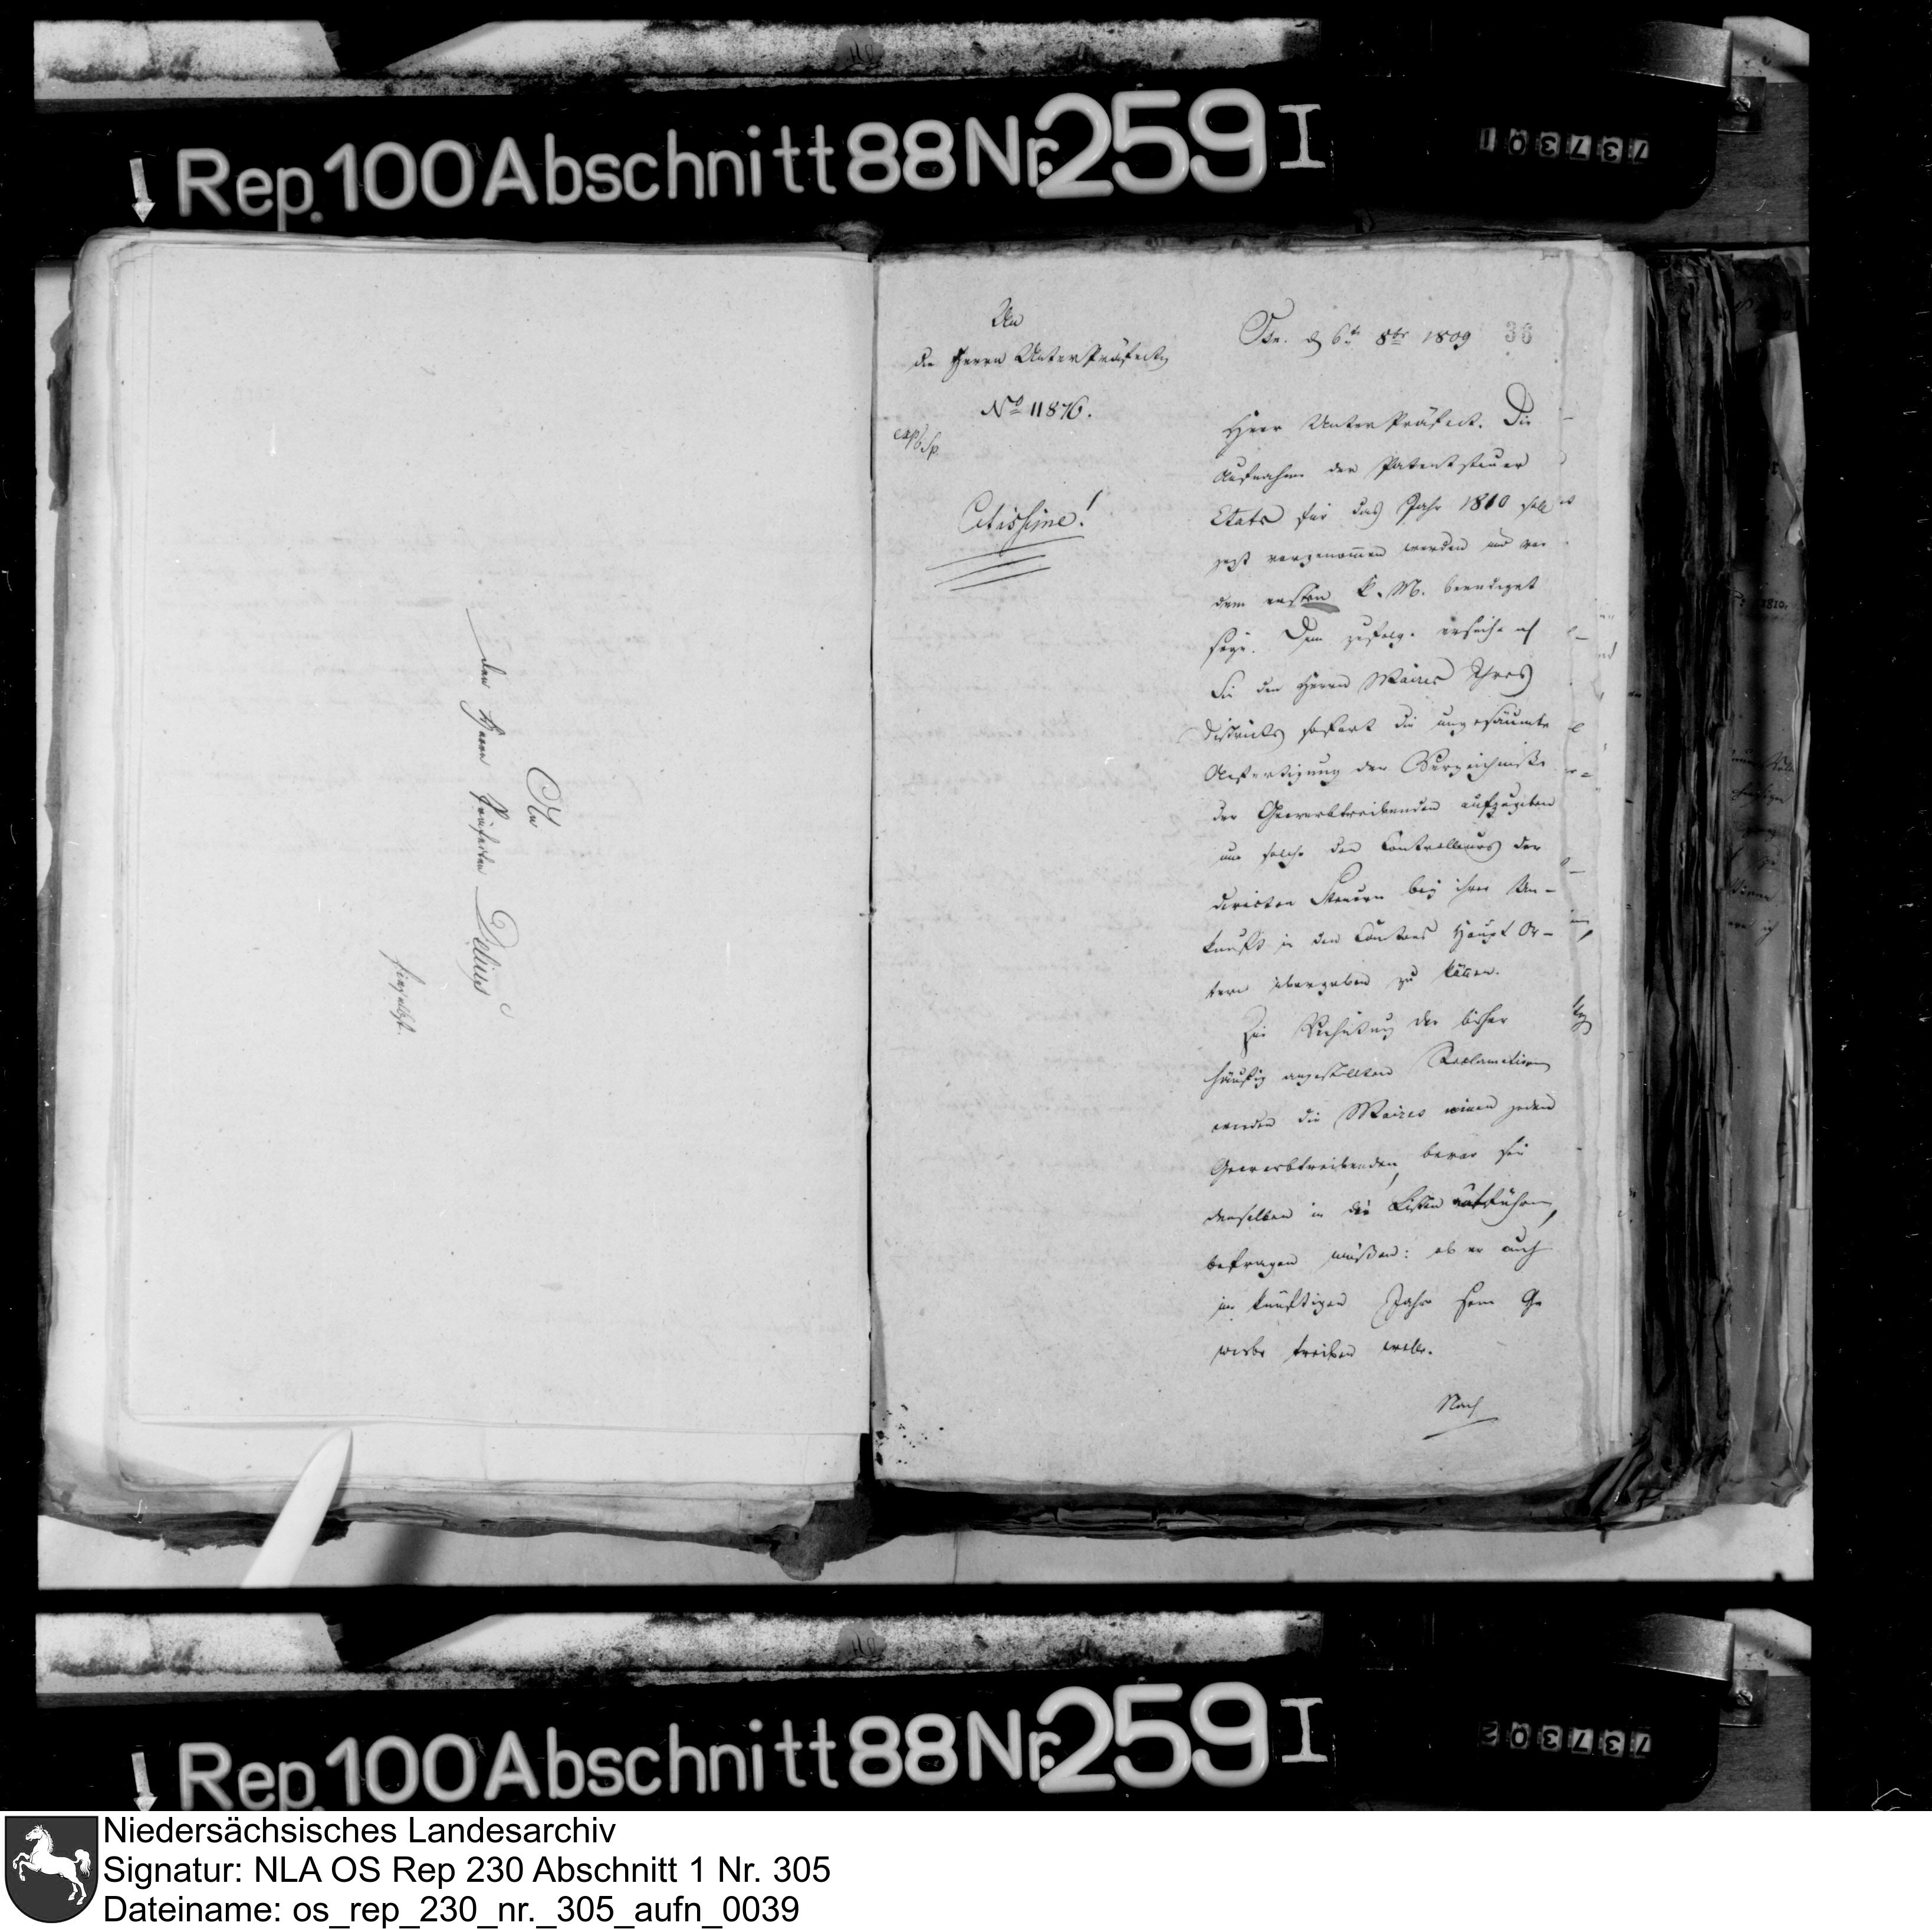 Rep. 100 Abschnitt 88 Nr. 259 I
737301
An
den Herrn Präfecten Delius
hieselbst.
An
die Herrn UnterPräfecten
No 11876.
Citissime!
Osn. d 6t 8br 1809
36
Herr UnterPräfect. Die
Aufnahme der Patentsteuer
Etats für das Jahr 1810 soll
jezt vorgenommen werden und vor
dem ersten k. M. beendiget
seyn. Dem zufolge ersuche ich
Sie den Herrn Maires Ihres
Districts sofort die ungesäumte
Anfertigung der Verzeichnisse
der Gewerbtreibenden aufzugeben
um solche den Controlleurs der
directen Steuern bey ihrer An-
kunft in den Cantons Haupt Or-
tern übergeben zu können.
Zur Verhütung der bisher
häufig angestellten Reclamationen
werden die Maires einen jeden
Gewerbtreibenden, bevor sie
denselben in die Listen aufführen,
befragen müßen: ob er auch
im künftigen Jahre sein Ge
werbe treiben wolle.
Nach
Rep. 100 Abschnitt 88 Nr. 259 I
737302
Niedersächsisches Landesarchiv
Signatur: NLA OS Rep 230 Abschnitt 1 Nr. 305
Dateiname: os_rep_230_nr._305_aufn_0039